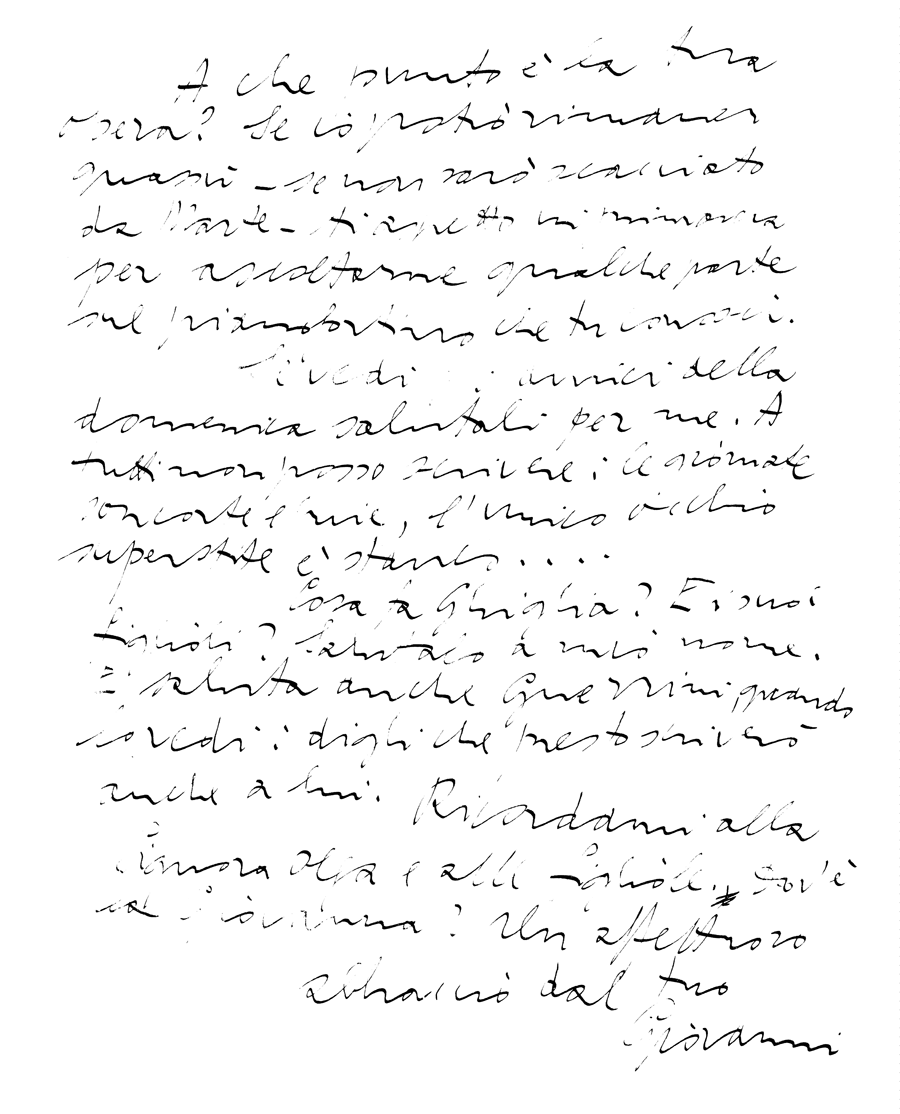 A che punto è la tua
opera? Se io potrò rimaner
quassù – se non sarò scacciato
da Marte – ti aspetto in
per ascoltarne qualche parte
sul pianofortino che tu conosci.
Se vedi amici della
domenica salutali per me. A
tutti non posso scrivere: le giornate
son corte e buie, l'unico occhio
superstite è stanco....
Cosa fa Ghiglia? E i suoi
figlioli? Salutalo a mio nome.
E saluta anche Guerrini, quando
lo vedi: digli che presto scriverò
anche a lui. Ricordami alla
Signora Olga e alle figliole. Dov'è
la Giovanna? Un affettuoso
abbraccio dal tuo
Giovanni